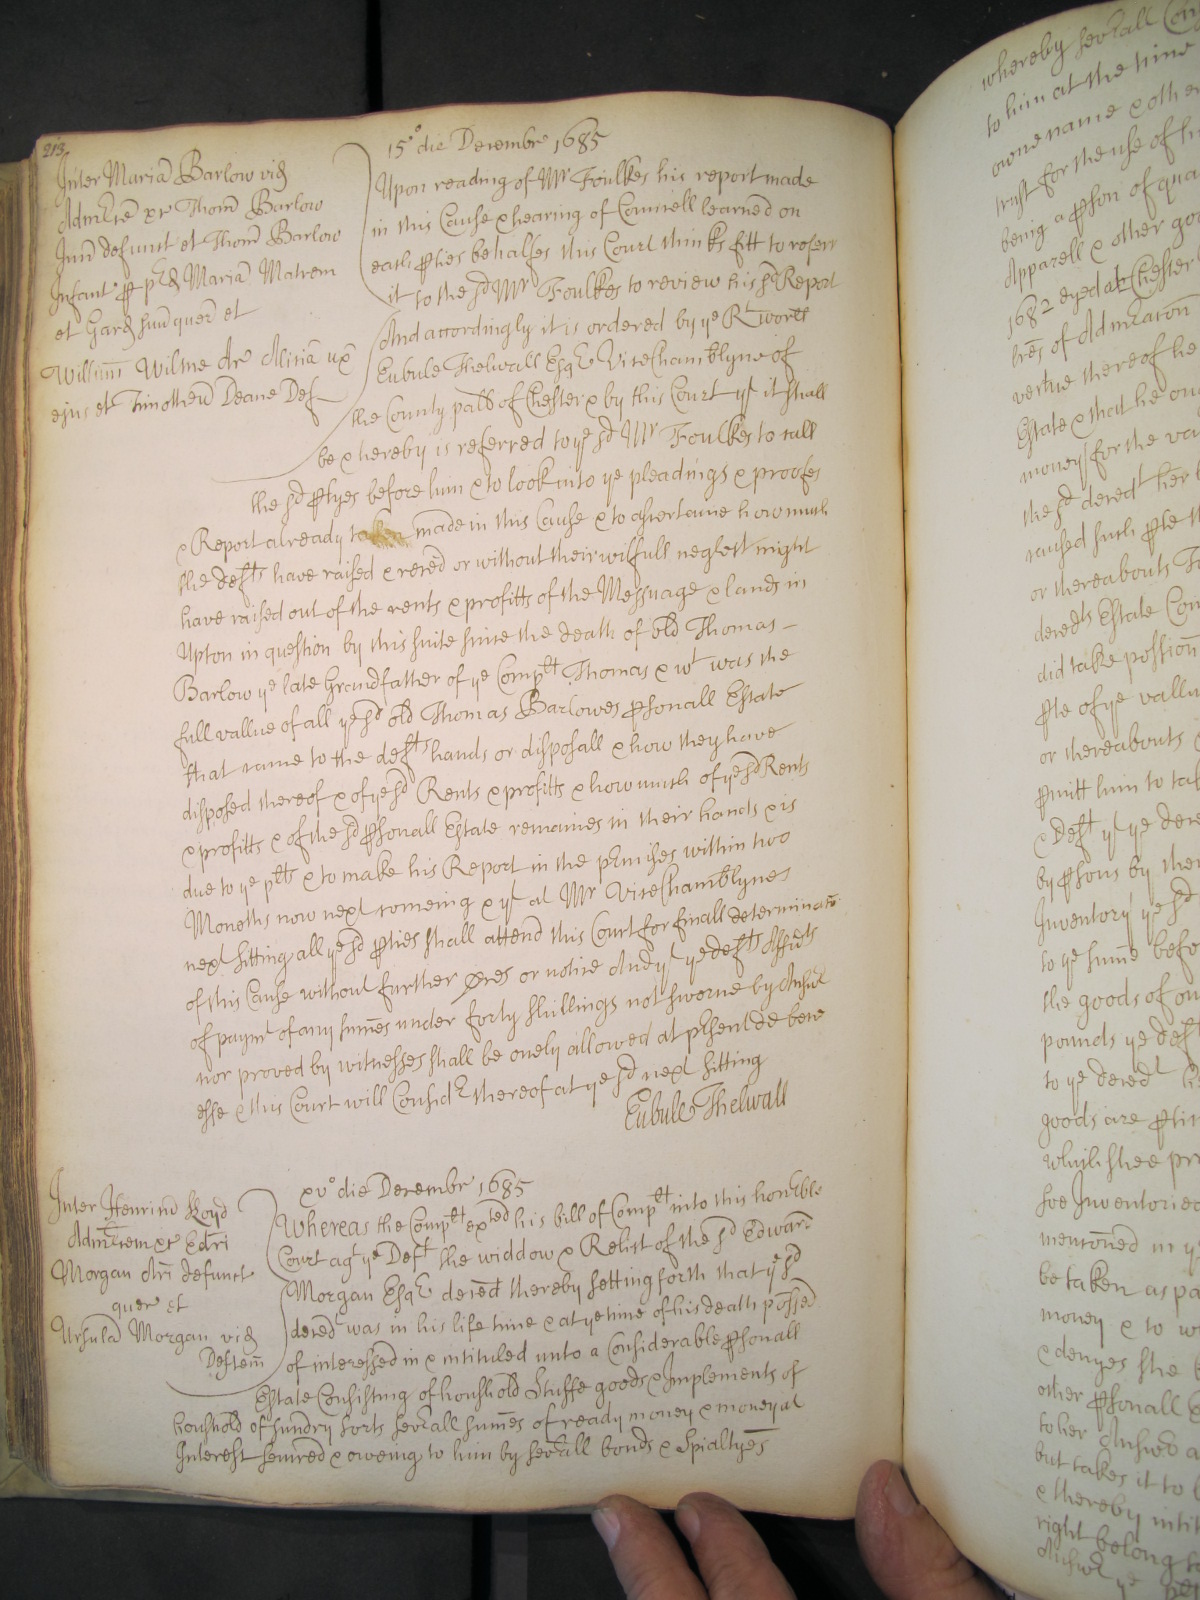 213
15° die Decembr 1685
Inter Mariā Barlow vid
Admtrē xr Thom̄ Barlow
Jun̄ defunct et Thom̄ Barlow
Infant p Mariā Matrem
et Gard suū quer et
Willūm Wilme Ar Aliciā ux̄
ejus et Timotheū Deane Def
Upon reading of Mr Foulkes his report made
in this Cause & hearing of Councell learned on
each pties behalfes this Court thinks fitt to referr
it to the sd Mr Foulkes to review his sd Report
And accordingly it is ordered by ye Rt worll
Eubule Thelwall Esqr Vice Chamblyne of
the County pall of Chester & by this Court yt it shall
be & hereby is referred to ye sd Mr Foulkes to call
the sd ptyes before him & to look into ye pleadings & proofes
& Report already taken made in this Cause & to ascertaine how much
the defts have raised & reced or without their wilfull neglect might
have raised out of the rents & profitts of the Messuage & lands in
Upton in question by this suite since the death of old Thomas
Barlow ye late Grandfather of ye Complt Thomas & wt was the
full vallue of all ye sd old Thomas Barlowes psonall Estate
that came to the defts hands or disposall & how they have
disposed thereof & of ye sd Rents & profitts & how much of ye sd Rents
& profitts & of the sd psonall Estate remaines in their hands & is
due to ye plts & to make his Report in the pmises within two
Moneths now next comeing & yt at Mr Vice Chamblynes
next sitting all ye sd pties shall attend this Court for finall determinatō
of this Cause without further pces or notice And yt ye defts Affidts
of paymt of any sum̄es under forty shillings not sworne by Answr
nor proved by witnesses shall be onely allowed at psent de bene
esse & this Court will Considr thereof at ye sd next sitting
Eubule Thelwall
xv° die Decembr 1685
Inter Henricū Lloyd
Admtrem xr Edri
Morgan Ari defunct
quer et
Ursulā Morgan vid
Deftem̄
Whereas the Complt exted his bill of Complt into this honble
Court agt ye Deft the widdow & Relict of the sd Edward
Morgan Esqr decēd thereby setting forth that ye sd
decēd was in his life time & at ye time of his death possed
of interessed in & intituled unto a Considerable psonall
Estate Consisting of houshold Stuffe goods & Implements of
houshold of sundry sorts severall sum̄es of ready money & money at
Interest secured & oweing to him by severall bonds & Spialtyes
whereby severall
to him at the time
owne name & other
trust for the use of
being a pson of
Apparell & other
1682 Chester
lrēs of Admtracon
vertue thereof he
Estate & that he
money for the
the sd decedt her
caused such pte
or thereabouts
decedts Estate
did take possion
pte of ye
or thereabouts
pmitt him to
& Deft yt ye
by psons by
Inventory ye sd
to ye sum̄e
the goods of
pounds ye deft
to ye decedt
goods are
which shee
soe Inventoried
mencōned in
be taken as
money & to
& denyes she
other psonall
to her Answr
but takes it to
& thereby
right belong
Answr ye